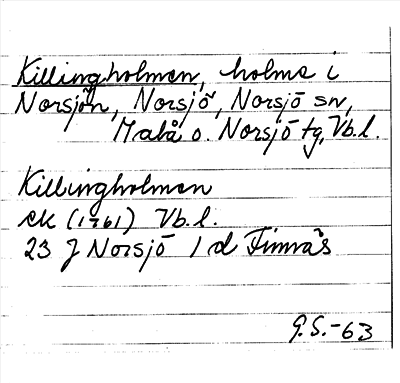 Killingholmen, holme i
Norsjön, Norsjö, Norsjö sn,
Malå o. Norsjö tg, Vb.l.
Killingholmen
ek (1961) Vb.l.
23 J Norsjö 1 d Finnäs
G.S.-63